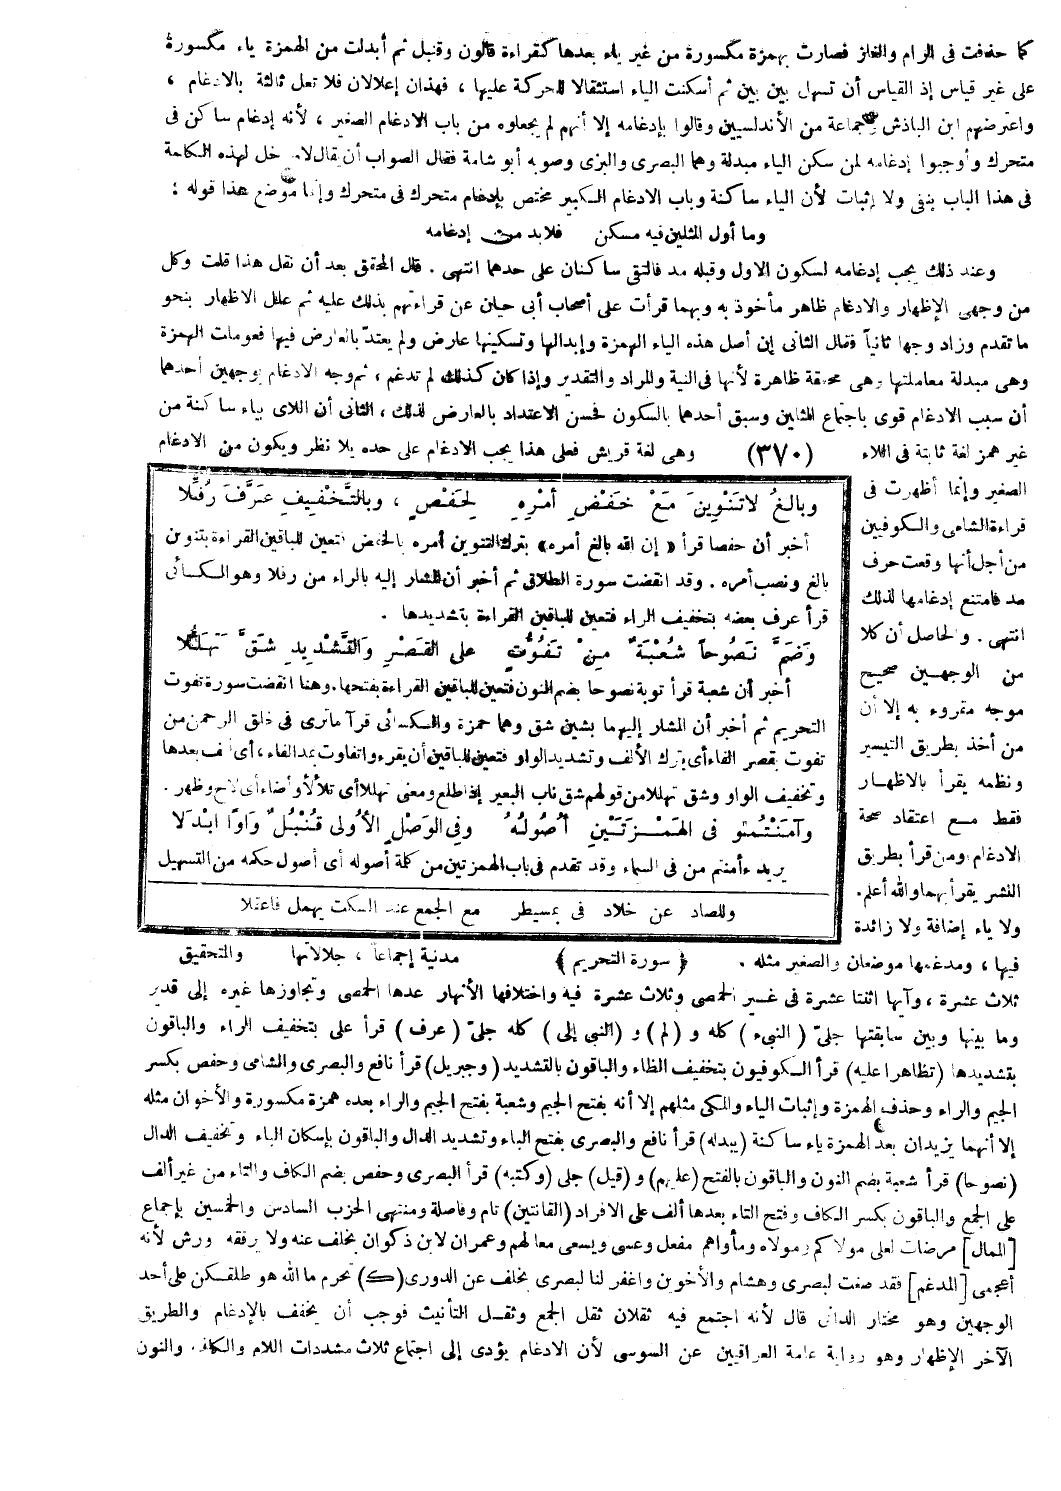 كما حذفت فى الرام والغاز فصارت بهمزة مكسورة من غير ياء بعدها كقراءة قالون وقنبل ثم أبدلت من الهمزة ياء مكسورة
على غير قياس إذ القياس أن تسهل بين بين ثم أسكنت الياء استثقالا للحركة عليها ، فهذان إعلالان فلا تعل ثالثة بالادغام ،
واعترضهم ابن الباذش وجماعة من الأندلسيين وقالوا بإدغامه إلا أنهم لم يجعلوه من باب الادغام الصغير ، لأنه إدغام ساكن فى
متحرك وأوجبوا إدغامه لمن سكن الياء مبدلة وهما البصرى والبزى وصوبه أبو شامة فقال الصواب أن يقال لامدخل لهذه الكلمة
فى هذا الباب بنفى ولا إثبات لأن الياء ساكنة وباب الادغام الكبير مختص بإدغام متحرك فى متحرك وإنما موضع هذا قوله :
وما أول المثلين فيه مسكن فلابد من إدغامه
وعند ذلك يجب إدغامه لسكون الاول وقبله مد فالتقى ساكنان على حدهما انتهى . قال المحقق بعد أن نقل هذا قلت وكل
من وجهى الإظهار والادغام ظاهر مأخوذ به وبهما قرأت على أصحاب أبى حيان عن قراءتهم بذلك عليه ثم علل الاظهار بنحو
ما تقدم وزاد وجها ثانياً فقال الثانى إن أصل هذه الياء الهمزة وإبدالها وتسكينها عارض ولم يعتدّ بالعارض فيها فعوملت الهمزة
وهى مبدلة معاملتها وهى محققة ظاهرة لأنها فى النية والمراد والتقدير وإذا كان كذلك لم تدغم ، ثم وجه الادغام بوجهين أحدهما
أن سبب الادغام قوى باجتماع المثلين وسبق أحدهما بالسكون فحسن الاعتداد بالعارض لذلك ، الثانى أن اللاى بياء ساكنة من
غير همز لغة ثابتة فى اللاء (٣٧٠) وهى لغة قريش فعلى هذا يجب الادغام على حده بلا نظر ويكون من الادغام
الصغير وإنما أظهرت فى
قراءة الشامى والكوفيين
من أجل أنها وقعت حرف
مد فامتنع إدغامها لذلك
انتهى . والحاصل أن كلا
من الوجهين صحيح
موجه مقروء به إلا أن
من أخذ بطريق التيسير
ونظمه يقرأ بالاظهار
فقط مع اعتقاد صحة
الادغام ومن قرأ بطريق
النشر يقرأ بهما والله أعلم.
ولا ياء إضافة ولا زائدة
وبالغُ لا تَنْوِينَ مَعْ خَفْضِ أَمْرِهِ لِحَفْصٍ ، وبالتَّخْفِيفِ عَرَّفَ رُفِّلَا
أخبر أن حفصا قرأ « إن الله بالغ أمره » بترك التنوين أمره بالخفض فتعين للباقين القراءة بتنوين
بالغ ونصب أمره . وقد انقضت سورة الطلاق ثم أخبر أن المشار إليه بالراء من رفلا وهو الكسائى
قرأ عرف بعضه بتخفيف الراء فتعين للباقين القراءة بتشديدها .
وَضَمَّ نَصُوحاً شُعْبَةٌ مِنْ تَفَوُّتٍ على القَصْرِ وَالتَّشْدِيدِ شَقَّ تَهَلُّلَا
أخبر أن شعبة قرأ توبة نصوحا بضم النون فتعين للباقين القراءة بفتحها . وهنا انقضت سورة تفوت
التحريم ثم أخبر أن المشار إليهما بشين شق وهما حمزة والكسائى قرآ ماترى فى خلق الرحمن من
تفوت بقصر الفاء أى بترك الألف وتشديد الواو فتعين للباقين أن يقرءوا تفاوت بمد الفاء ، أى ألف بعدها
وتخفيف الواو وشق تهللا من قولهم شق ناب البعير إذا طلع ومعنى تهللا أى تلألأ وأضاء أى لاح وظهر .
وآمَنْتُمُو فى الهَمْزَتَيْنِ أُصُولُهُ وفى الوَصْلِ الأُولى قُنْبُلٌ وَاوًا ابْدَلَا
يريد ءأمنتم من فى السماء وقد تقدم فى باب الهمزتين من كلمة أصوله أى أصول حكمه من التسهيل
وللصاد عن خلاد فى بمسيطر مع الجمع عند السكت يهمل فاعقلا
فيها ، ومدغمها موضعان والصغير مثله . ﴿ سورة التحريم ﴾ مدنية إجماعاً ، جلالاتها والتحقيق
ثلاث عشرة ، وآيها اثنتا عشرة فى غير الحمصى وثلاث عشرة فيه واختلافها الأنهار عدها الحمصى وتجاوزها غيره إلى قدير
وما بينها وبين سابقتها جلىّ (النبىء) كله و (لم) و (النبى إلى) كله جلىّ (عرف) قرأ على بتخفيف الراء والباقون
بتشديدها (تظاهرا عليه) قرأ الكوفيون بتخفيف الظاء والباقون بالتشديد (وجبريل) قرأ نافع والبصرى والشامى وحفص بكسر
الجيم والراء وحذف الهمزة وإثبات الياء والمكى مثلهم إلا أنه بفتح الجيم وشعبة بفتح الجيم والراء بعده همزة مكسورة والأخوان مثله
إلا أنهما يزيدان بعد الهمزة ياء ساكنة (يبدله) قرأ نافع والبصرى بفتح الباء وتشديد الدال والباقون بإسكان الباء وتخفيف الدال
(نصوحا) قرأ شعبة بضم النون والباقون بالفتح (عليهم) و (قيل) جلى (وكتبه) قرأ البصرى وحفص بضم الكاف والتاء من غير ألف
على الجمع والباقون بكسر الكاف وفتح التاء بعدها ألف على الافراد (القانتين) تام وفاصلة ومنتهى الحزب السادس والخمسين بإجماع
[الممال] مرضات لعلى مولاكم ومولاه ومأواهم مفعل وعسى ويسعى معا لهم وعمران لابن ذكوان بخلف عنه ولا يرققه ورش لأنه
أعجمى [المدغم] فقد صغت لبصرى وهشام والأخوين واغفر لنا لبصرى بخلف عن الدورى (ك) تحرم ما الله هو طلقكن على أحد
الوجهين وهو مختار الدانى قال لأنه اجتمع فيه ثقلان ثقل الجمع وثقل التأنيث فوجب أن يخفف بالإدغام والطريق
الآخر الإظهار وهو رواية عامة العراقيين عن السوسى لأن الادغام يؤدى إلى اجتماع ثلاث مشددات اللام والكاف والنون